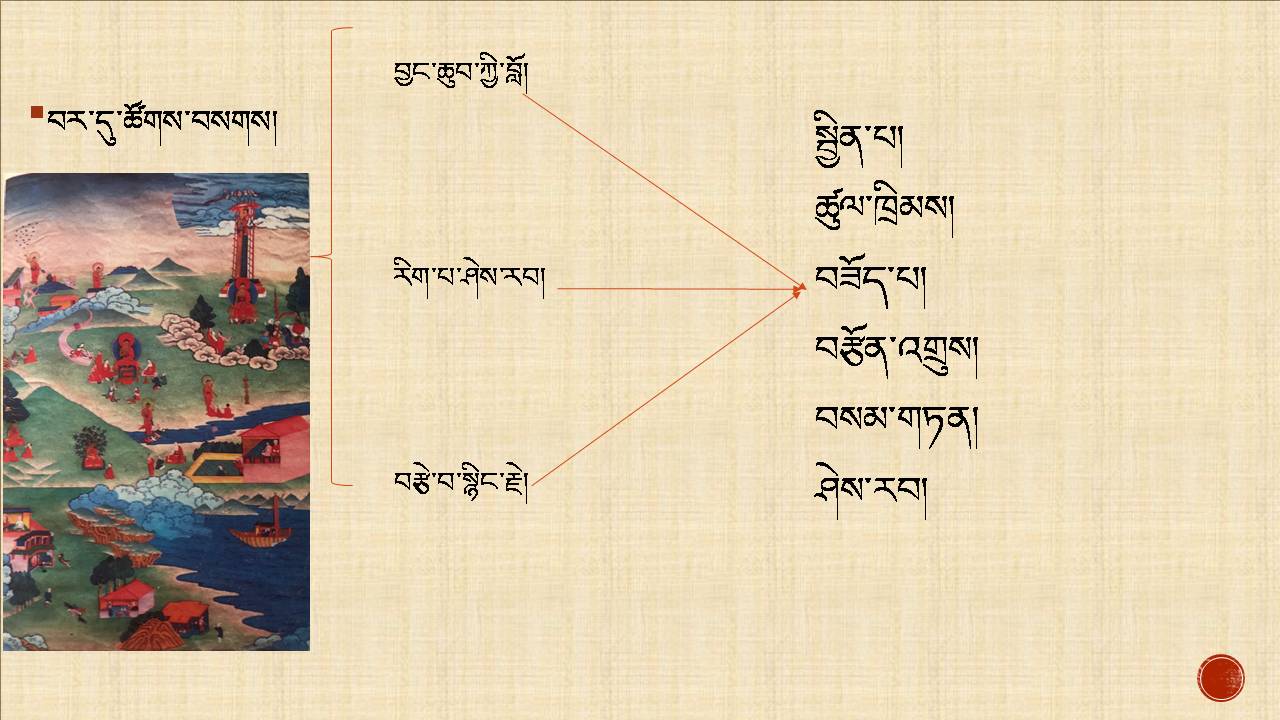 བར་དུ་ཚོགས་བསགས།
བྱང་ཆུབ་ཀྱི་བློ།
རིག་པ་ཤེས་རབ།
བརྩེ་བ་སྙིང་རྗེ།
སྦྱིན་པ།
ཚུལ་ཁྲིམས།
བཟོད་པ།
བརྩོན་འགྲུས།
བསམ་གཏན།
ཤེས་རབ།